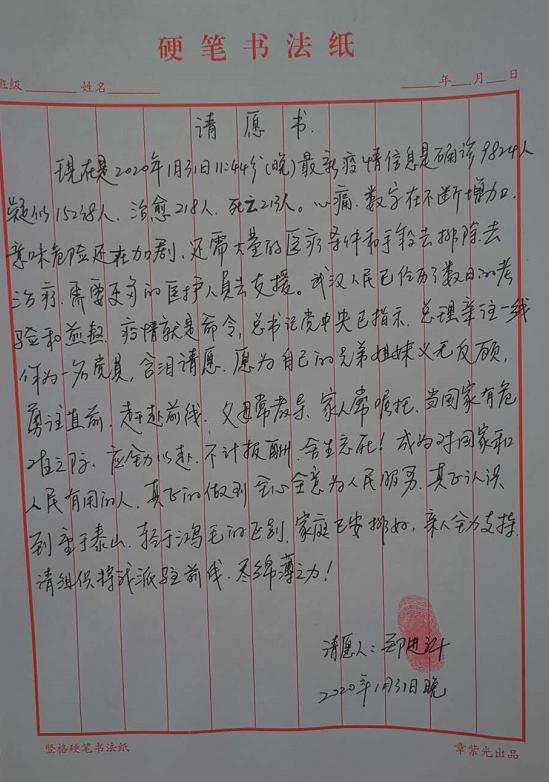 硬笔书法纸
班级 姓名 年 月 日
请愿书.
现在是2020年1月31日11:44分(晚)最新疫情信息是确诊9824人
疑似15238人、治愈218人、死亡213人。心痛、数字在不断增加
意味危险还在加剧、还需大量的医疗条件和手段去排除、去
治疗、需要更多的医护人员去支援。武汉人民已经历了数日的考
验和煎熬 疫情就是命令,总书记党中央已指示、总理亲往一线
作为一名党员,含泪请愿、愿为自己的兄弟姐妹义无反顾,
勇往直前、赶赴前线、父母常教导、家人常嘱托、当国家有危
难之际、应全力以赴、不计报酬、舍生忘死!成为对国家和
人民有用的人、真正的做到全心全意为人民服务、真正认识
到重于泰山、轻于鸿毛的区别、家庭已安排好,亲人全力支持、
请组织将我派驻前线、尽绵薄之力!
请愿人:
2020年1月31日晚
竖格硬笔书法纸 章紫光出品